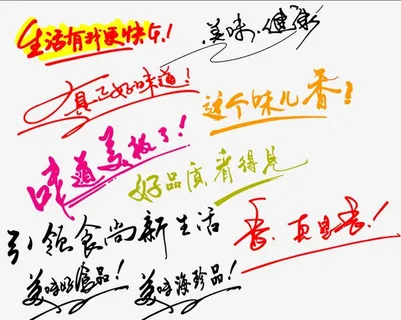 生活有我更快乐！
美味.健康
真正好味道！
这个味儿香！
味道美极了！
好品质看得见
引领食尚新生活
香，真是香！
美味好食品！
美味海珍品！